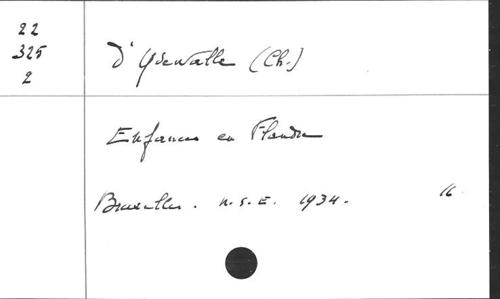 22
325
2
d'Ydewalle (Ch.)
Enfances en Flandre
Bruxelles. n.s.E. 1934. 16